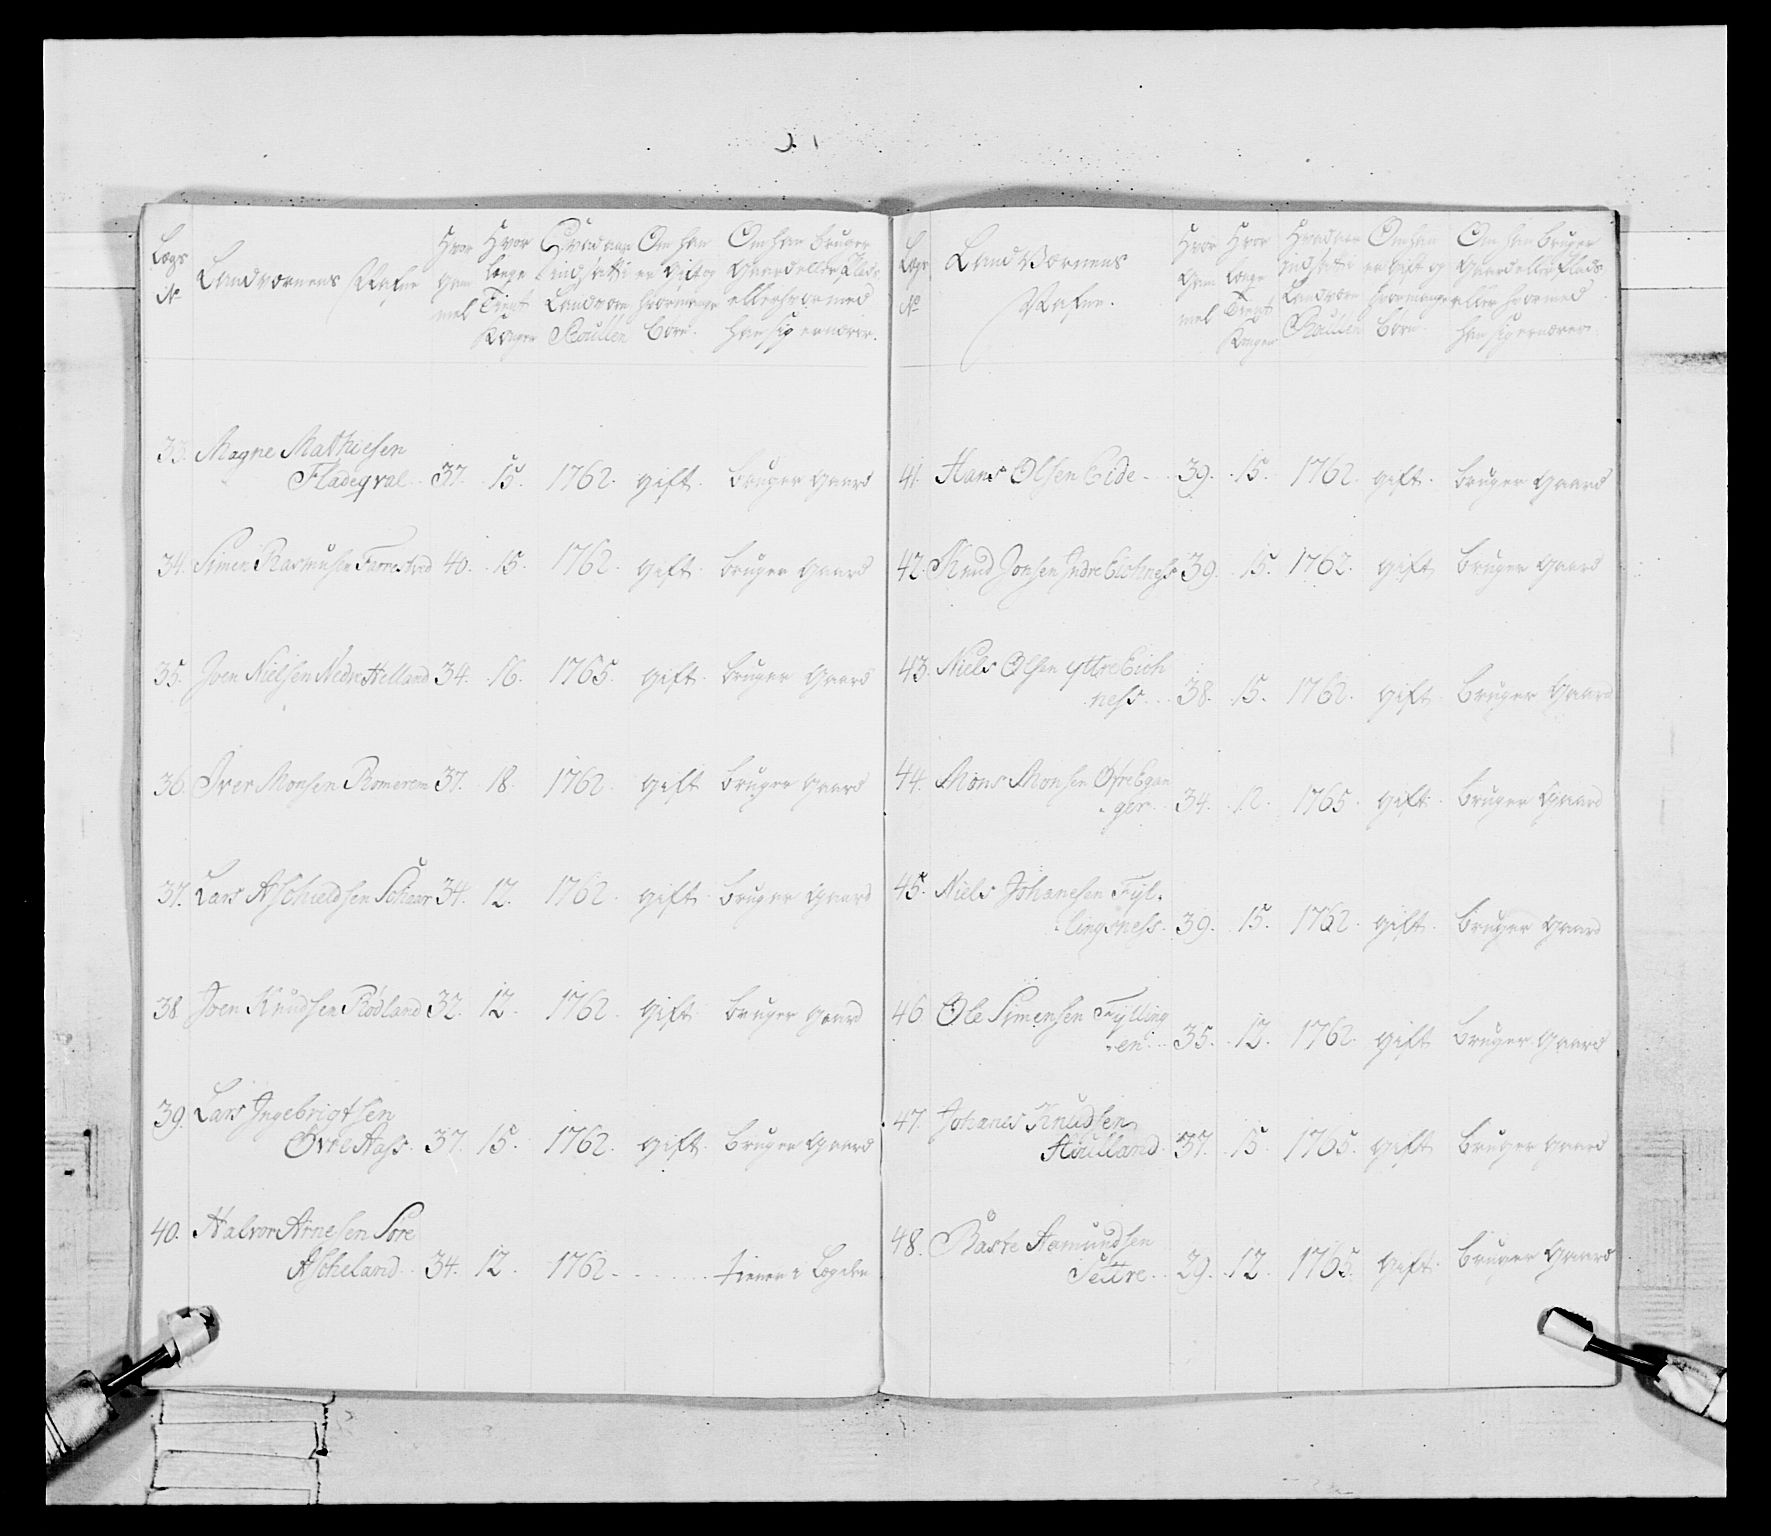 Lægs No
Landværnens Nafne
Hvor gam mel
Hvor længe Tient Kongen
Hvad aar indsatt i Landværn Roullen
Om han er gift og hvor mange børn.
Om han bruger Gaard eller Plads eller hvormed han sig ernærer.
33. Magne Mathiesen
Fladeqval. 37. 15. 1762. gift. bruger gaard
34. Simen Rasmusen Farrestved 40. 15. 1762. gift. bruger gaard
35. Joen Nielsen Nedre Helland 34. 16. 1765. gift. bruger gaard
36. Iver Monsen Romerem 37. 18. 1762. gift bruger gaard
37. Lars Aschieldsen Schaar 34. 12. 1762. gift. bruger gaard
38 Joen Knudsen Rødland 32. 12. 1762. gift bruger gaard
39. Lars Ingebrigtsen
Øvre Aass. 37. 15. 1762. gift. bruger gaard
40. Halvor Arnesen Søre
Ascheland. 34. 12. 1762. tiener i Bogden
Lægs No
Land Værnens Nafne.
Hvor Gam mel
Hvor længe Tient Kongen
Hvad aar indsat i Landværn Roullen
Om han er gift og hvor mange børn
Om han bruger Gaard eller Plads eller hvormed han sig ernærer.
41. Hans Olsen Eide. 39. 15. 1762. gift. bruger gaard
42. Knud Jonsen Indre Eichness 39. 15. 1762. gift bruger gaard
43. Niels Olsen yttre Eich
ness. 38. 15. 1762. gift. bruger gaard
44. Mons Monsen Øfre Egan
ger. 34. 12. 1765. gift. bruger gaard
45. Niels Johanesen Fyl-
lingsness. 39. 15. 1762. gift. bruger gaard
46 Ole Simensen Fylling
en. 35. 12. 1762. gift bruger gaard
47. Johanes Knudsen
Houlland. 37. 15. 1765. gift bruger gaard
48. Baste Aamundsen
Settre. 29. 12. 1765. gift. bruger gaard